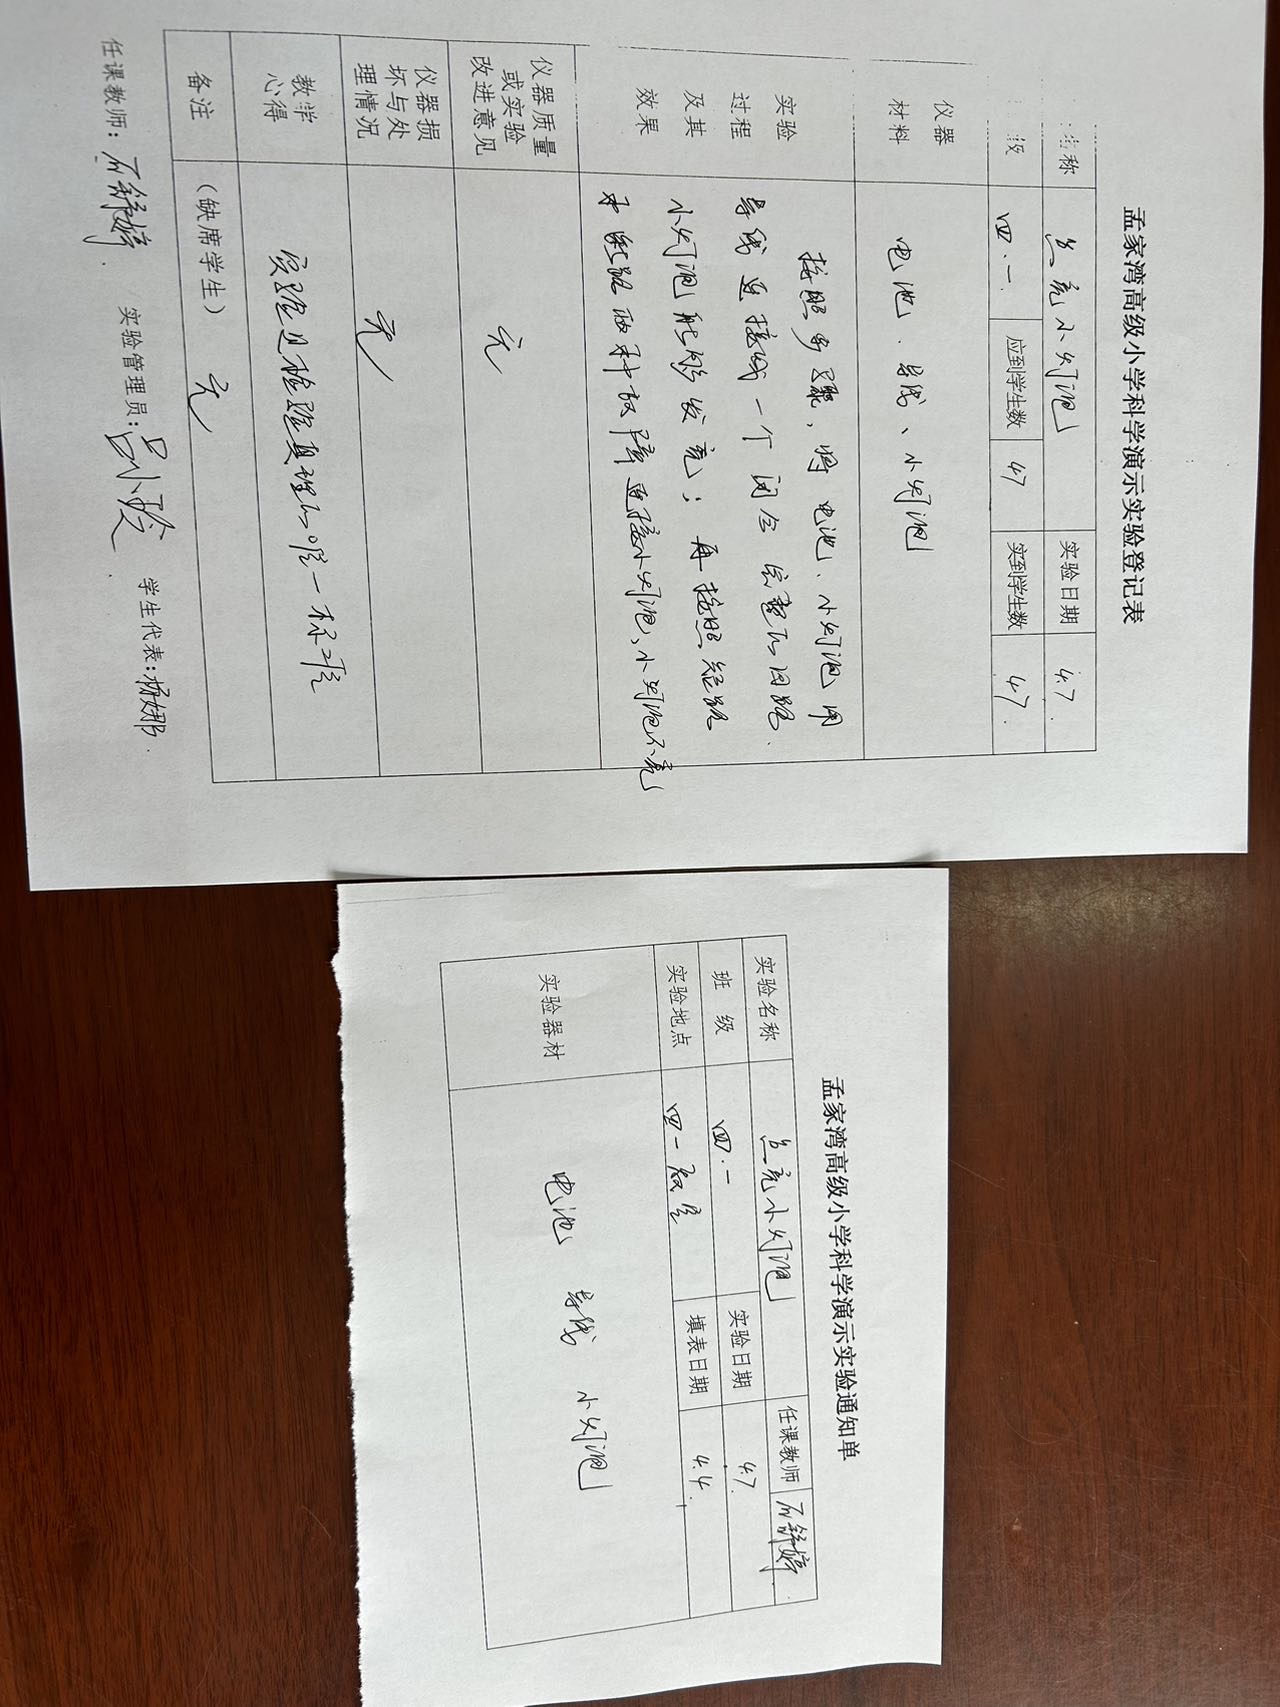 孟家湾高级小学科学演示实验登记表
名称 点亮小灯泡 实验日期 4.7.
级 四.一 应到学生数 47 实到学生数 47.
仪器材料 电池、导线、小灯泡
实验过程及其效果
按照步骤,将电池、小灯泡用
导线连接成一个闭合完整的回路.
小灯泡能够发亮;再按照短路
和断路两种故障连接小灯泡,小灯泡不亮
仪器质量或实验改进意见 无
仪器损坏与处理情况 无
教学心得 实践是检验真理的唯一标准
备注 (缺席学生) 无
任课教师: 石舒婷. 实验管理员: 吕小玲 学生代表: 杨娜.
孟家湾高级小学科学演示实验通知单
实验名称 点亮小灯泡 任课教师 石舒婷
班级 四.一 实验日期 4.7.
实验地点 四一教室 填表日期 4.4.
实验器材 电池 导线 小灯泡